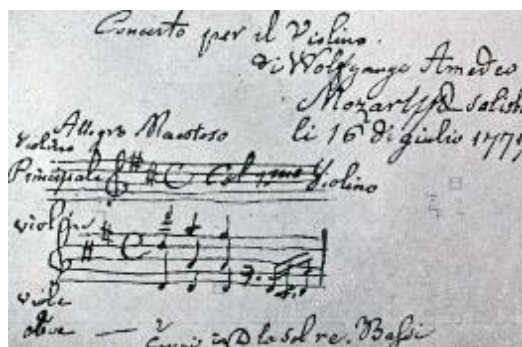 Concerto per il Violino.
di Wolfgango Amedeo
Mozart
li 16 di giulio 177
Allegro Maestoso
Violino
Principale
Col Violino
viol
viole
oboe
Corni in D la sol re. Bassi